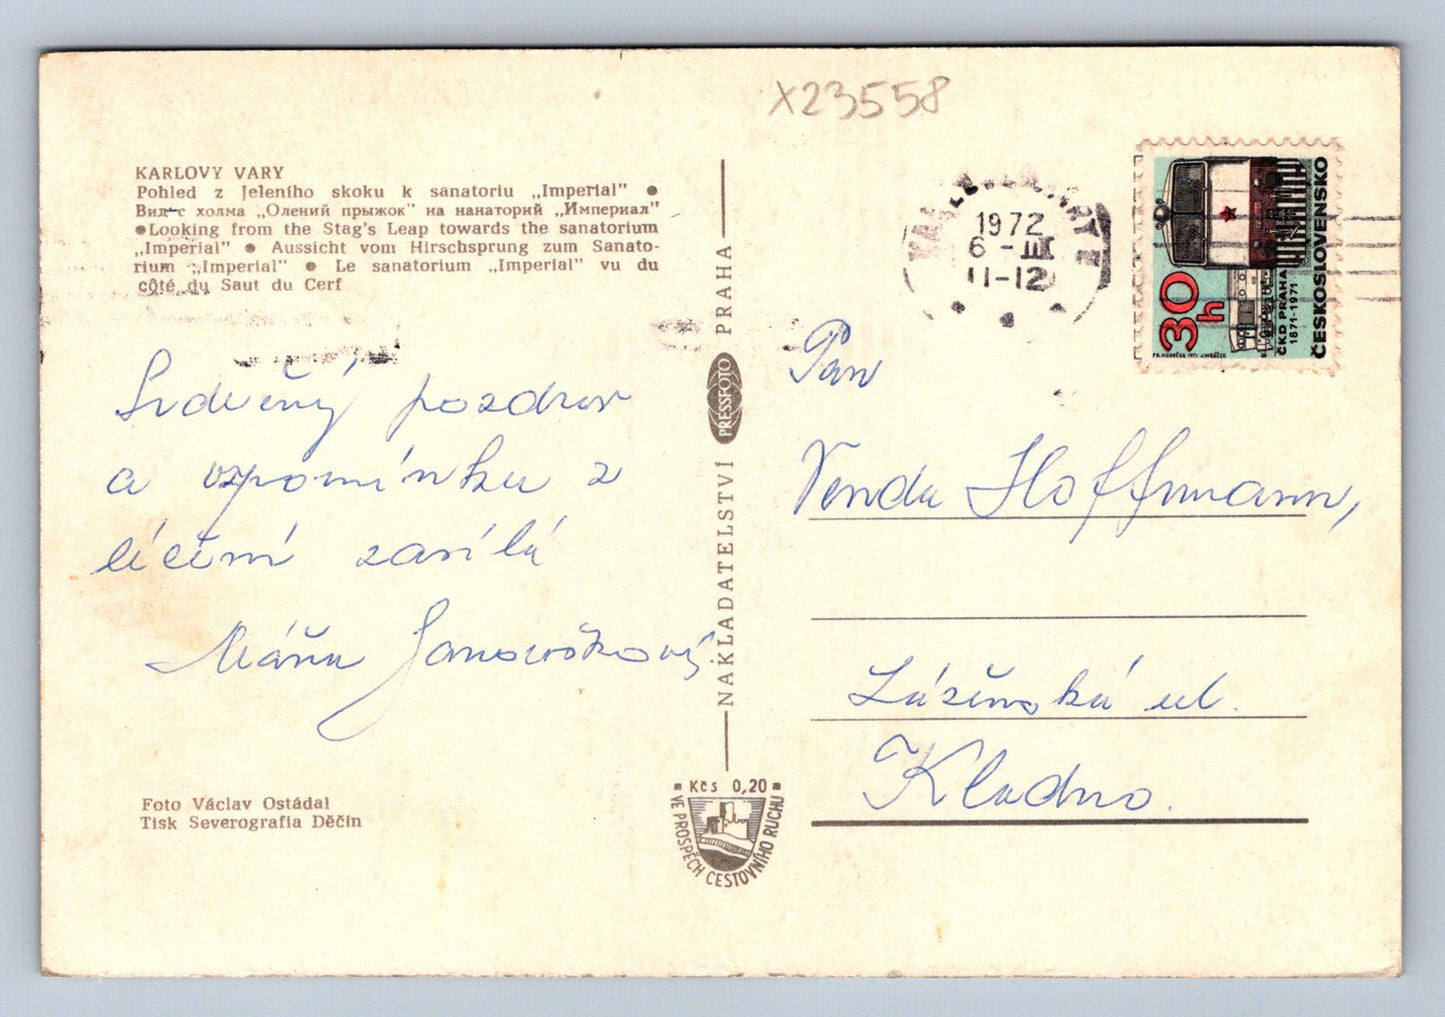 X23558
KARLOVY VARY
Pohled z Jeleního skoku k sanatoriu „Imperial" ●
Вид с холма „Олений прыжок" на нанаторий „Империал"
●Looking from the Stag's Leap towards the sanatorium
„Imperial" ● Aussicht vom Hirschsprung zum Sanato-
rium „Imperial" ● Le sanatorium „Imperial" vu du
côté du Saut du Cerf
Srdečný pozdrav
a vzpomínku z
léčení zasílá
Máňa Janoušková.
Foto Václav Ostádal
Tisk Severografia Děčín
NAKLADATELSTVÍ PRESSFOTO PRAHA
Kčs 0,20
VE PROSPĚCH CESTOVNÍHO RUCHU
KARLOVY VARY 1
1972
6 -III
11-12
30h
ČKD PRAHA
1871-1971
ČESKOSLOVENSKO
Pan
Venda Hoffmann,
Lázeňská ul.
Kladno.